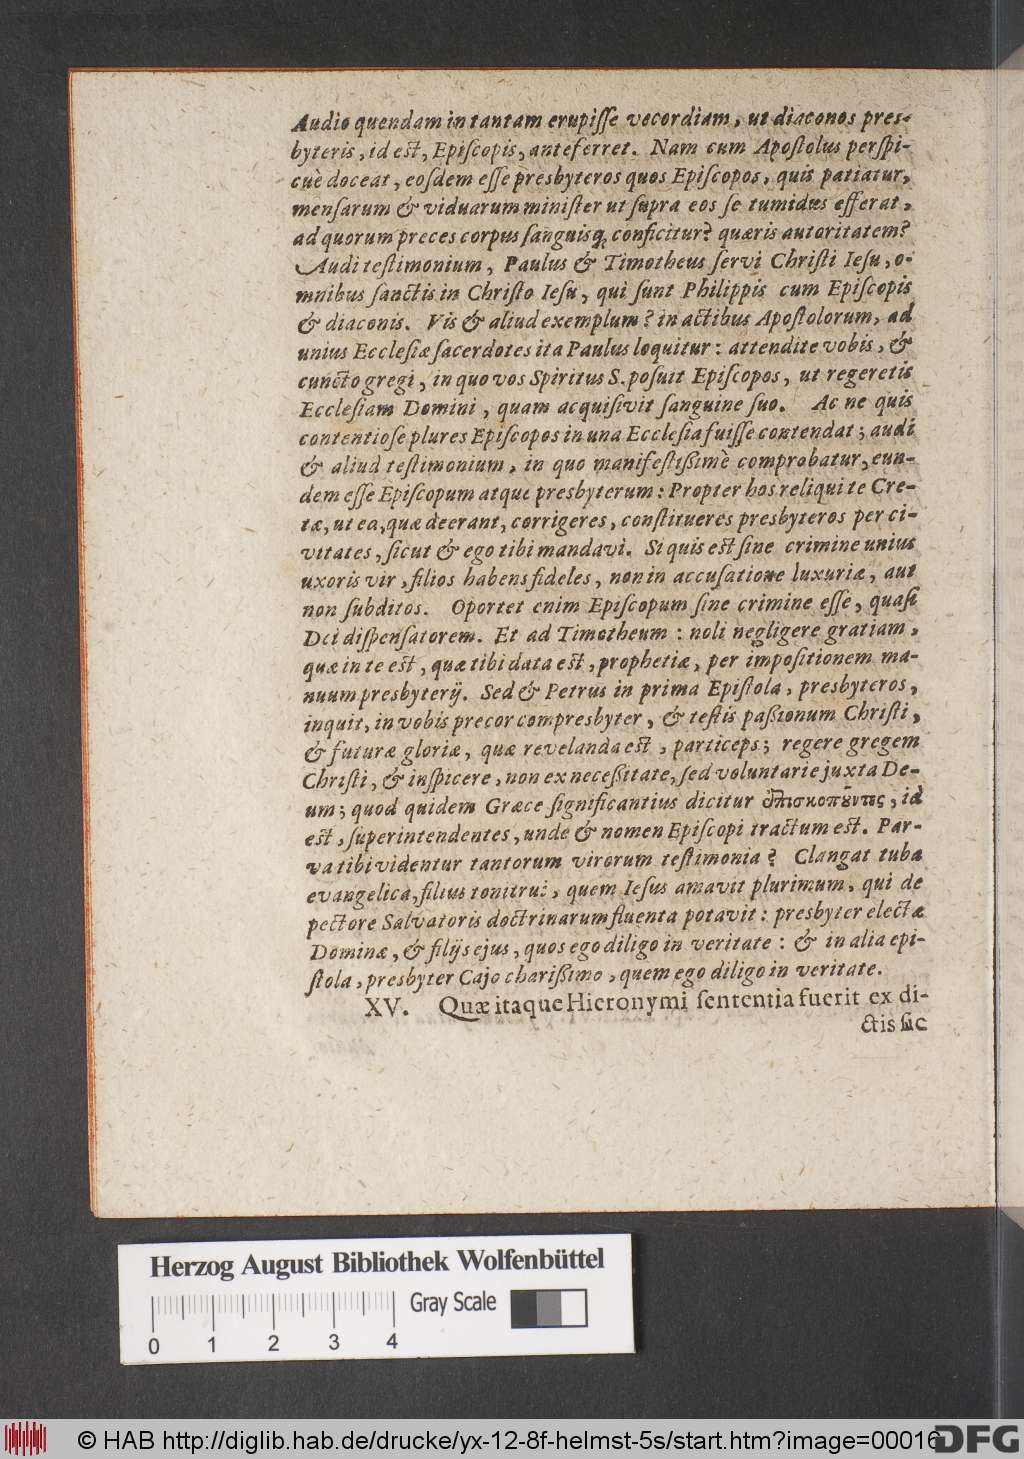 Audio quendam in tantam erupiſſe vecordiam, ut diaconos pres-
byteris, id est, Epiſcopis, anteferret. Nam cum Apoſtolus perſpi-
cuè doceat, eoſdem eſſe presbyteros quos Epiſcopos, quis patiatur,
menſarum & viduarum miniſter ut ſupra eos ſe tumidus efferat,
ad quorum preces corpus ſanguisq; conficitur? quæris autoritatem?
Audi teſtimonium, Paulus & Timotheus ſervi Chriſti Ieſu, o-
mnibus ſanctis in Chriſto Ieſu, qui ſunt Philippis cum Epiſcopis
& diaconis. Vis & aliud exemplum? in actibus Apoſtolorum, ad
unius Eccleſiæ ſacerdotes ita Paulus loquitur: attendite vobis, &
cuncto gregi, in quo vos Spiritus S. poſuit Epiſcopos, ut regeretis
Eccleſiam Domini, quam acquiſivit ſanguine ſuo. Ac ne quis
contentioſe plures Epiſcopos in una Eccleſia fuiſſe contendat; audi
& aliud teſtimonium, in quo manifeſtißimè comprobatur, eun-
dem eſſe Epiſcopum atque presbyterum: Propter hos reliqui te Cre-
tæ, ut ea, quæ deerant, corrigeres, conſtitueres presbyteros per ci-
vitates, ſicut & ego tibi mandavi. Si quis est ſine crimine unius
uxoris vir, filios habens fideles, non in accuſatione luxuriæ, aut
non ſubditos. Oportet enim Epiſcopum ſine crimine eſſe, quaſi
Dei diſpenſatorem. Et ad Timotheum: noli negligere gratiam,
quæ in te est, quæ tibi data est, prophetiæ, per impoſitionem ma-
nuum presbyterij. Sed & Petrus in prima Epiſtola, presbyteros,
inquit, in vobis precor compresbyter, & teſtis paßionum Chriſti,
& futuræ gloriæ, quæ revelanda est, particeps; regere gregem
Chriſti, & inſpicere, non ex neceßitate, ſed voluntarie juxta De-
um; quod quidem Græce ſignificantius dicitur ἐπισκοποῦντες, id
est, ſuperintendentes, unde & nomen Epiſcopi tractum est. Par-
va tibi videntur tantorum virorum teſtimonia? Clangat tuba
evangelica, filius tonitrui, quem Ieſus amavit plurimum, qui de
pectore Salvatoris doctrinarum fluenta potavit: presbyter electæ
Dominæ, & filijs ejus, quos ego diligo in veritate: & in alia epi-
ſtola, presbyter Cajo charißimo, quem ego diligo in veritate.
XV. Quæ itaque Hieronymi ſententia fuerit ex di-
ctis ſic
Herzog August Bibliothek Wolfenbüttel
Gray Scale
0 1 2 3 4
© HAB http://diglib.hab.de/drucke/yx-12-8f-helmst-5s/start.htm?image=00016
DFG